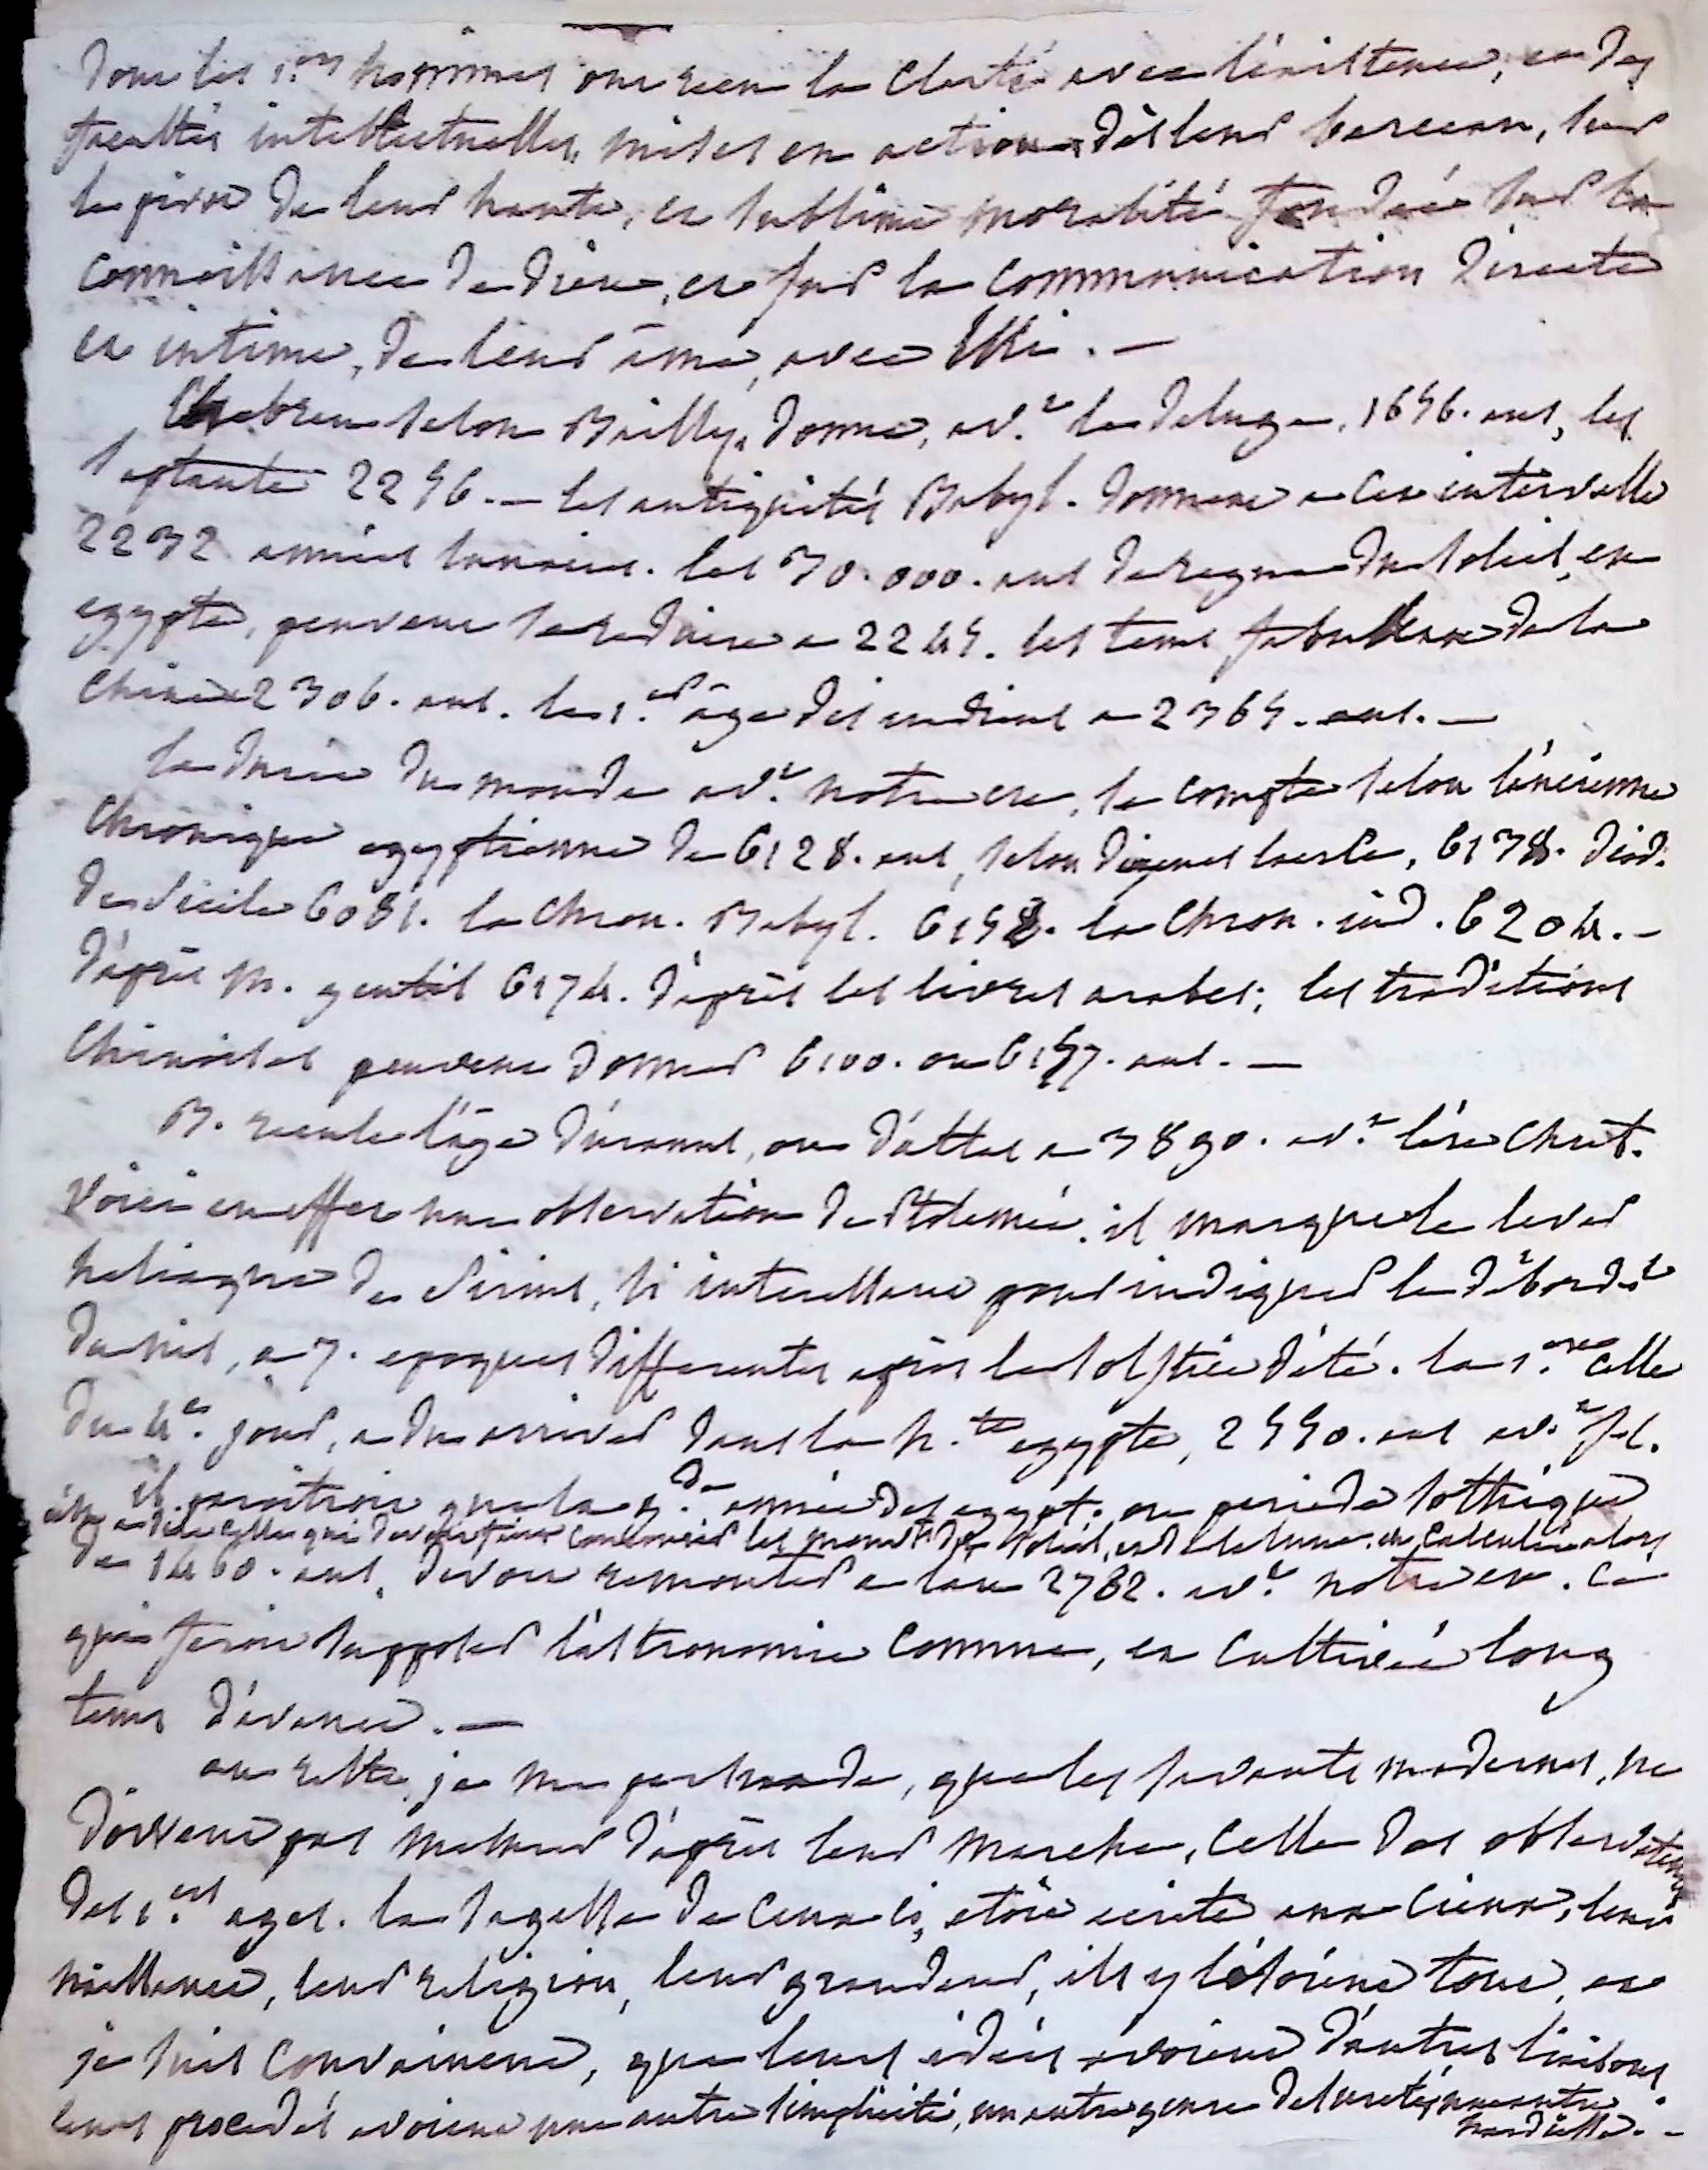 Donc les 1.ers hommes ont recu la clarté avec l'existence, et des
facultés intellectuelles, mises en action dès leur berceau, sur
le pivot de leur haute, et sublime moralité fondée sur la
connoissance de dieu, et sur la communication directe
et intime, de leur âme, avec lui. —
L'hebreu selon Bailly, donne, av.t le deluge, 1656. ans, les
septante 2256. — les antiquités Babyl. donnent a cet intervalle
2232 années lunaires. les 30.000. ans de regne du soleil, en
egypte, peuvent se reduire a 2245. les tems fabuleux de la
Chine 2306. ans. le 1.er âge des indiens a 2365. ans. —
la durée du monde av.t notre ere, se compte selon l'ancienne
Chronique egyptienne de 6128. ans, selon diogenes laerce, 6138. diod.
de Sicile 6081. la Chron. Babyl. 6158. la Chron. ind. 6204. —
d'après M. gentil 6174. d'après les livres arabes; les traditions
Chinoises peuvent donner 6100. ou 6157. ans. —
B. recule l'âge d'uranus, ou d'atlas a 3890. av.t l'ère Chret.
voici en effet une observation de Ptolemée. il marque le lever
heliaque de Sirius, si interessant pour indiquer le débordt
du nil, a 7. epoques differentes après le solstice d'été. la 1.ere celle
du 4.e jour, a du arriver dans la h.te egypte, 2550. ans av.t J.C.
il paroitroit que la g.de année des egypt. ou periode sothique
c'est a dire celle qui devoit faire concourir les mouvts du soleil, et de la lune, et calculée alors
de 1460. ans, devoit remonter a l'an 2782. av.t notre ere. Ce
qui feroit supposer l'astronomie connue, et cultivée long
tems d'avance. —
au reste, je me persuade, que les savants modernes, ne
doivent pas mesurer d'après leur marche, celle des observateurs
des 1.ers ages. la sagesse de ceux ci, étoit ecrite aux cieux, leur
naissance, leur religion, leur grandeur, ils y lisoient tout, et
je suis convaincue, que leurs idées avoient d'autres liaisons
leurs procedés avoient une autre simplicité, un autre genre de sureté, une autre
hardiesse. —